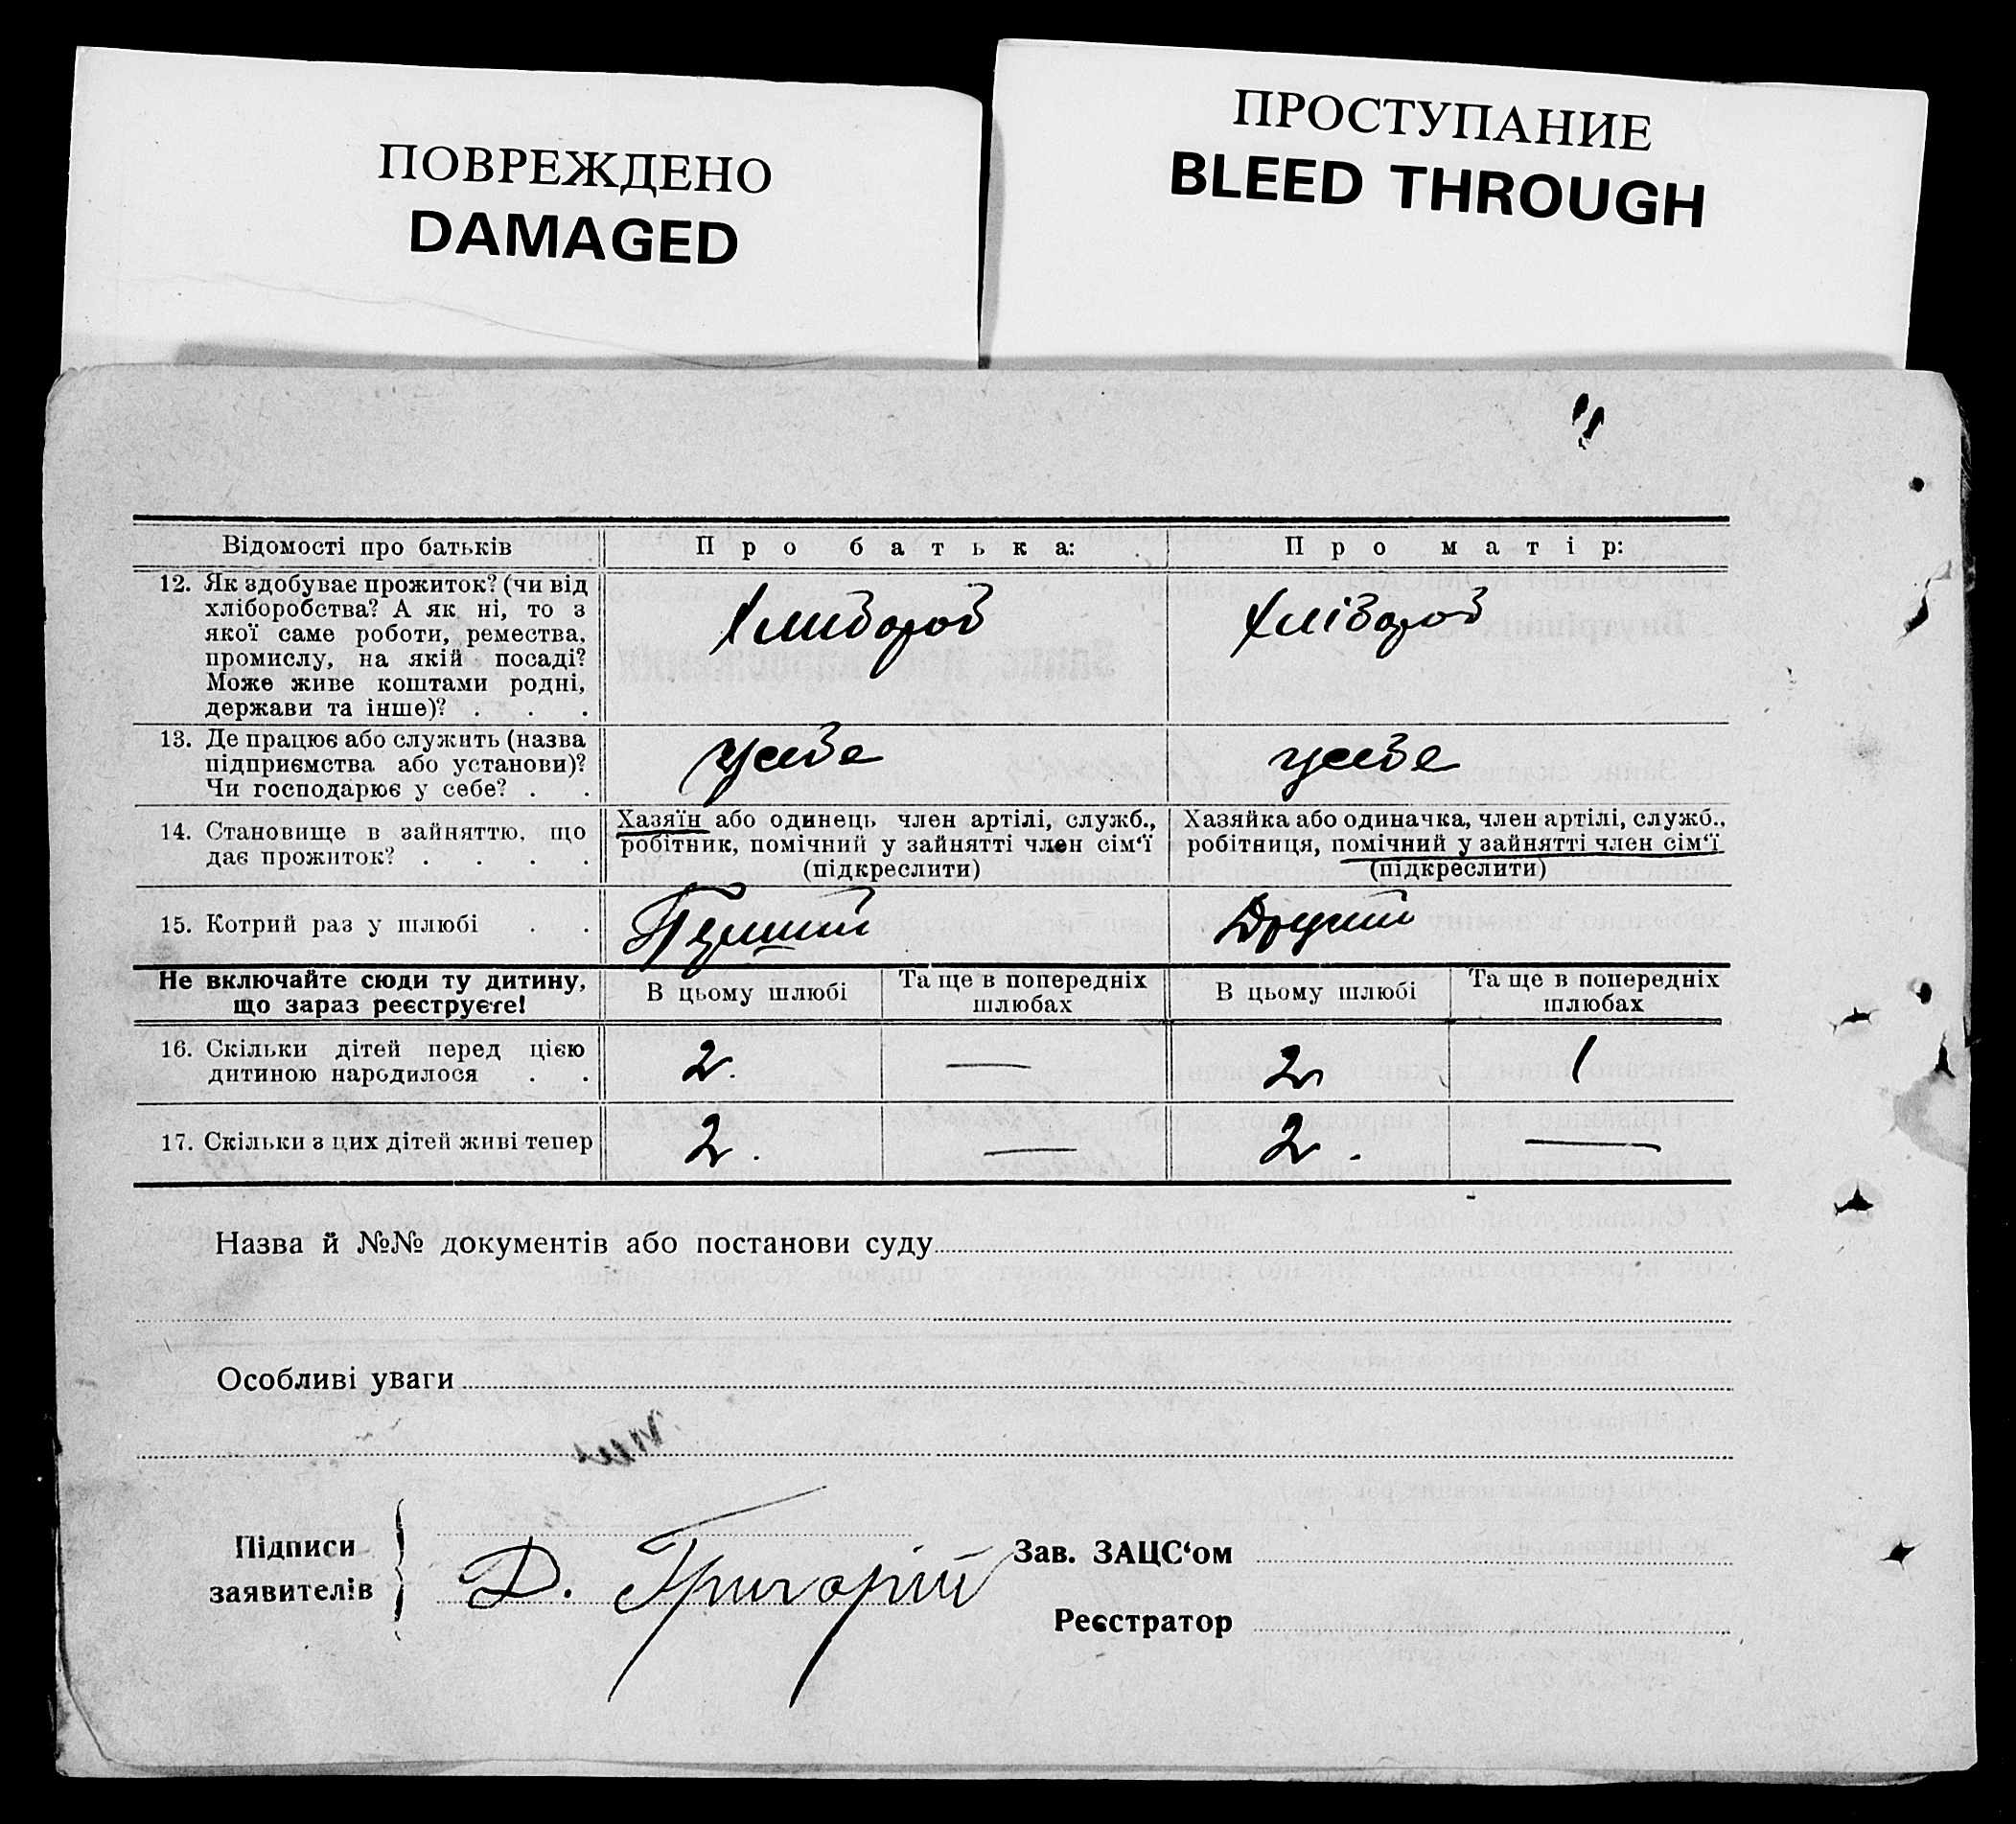 ПОВРЕЖДЕНО
DAMAGED
ПРОСТУПАНИЕ
BLEED THROUGH
Відомості про батьків
Про батька:
Про матір:
12. Як здобуває прожиток? (чи від
хліборобства? А як ні, то з
якої саме роботи, ремества,
промислу, на якій посаді?
Може живе коштами родні,
держави та інше)? . . .
Хлибороб
Хлібороб
13. Де працює або служить (назва
підприємства або установи)?
Чи господарює у себе? . .
усебе
усебе
14. Становище в зайняттю, що
дає прожиток? . . . .
Хазяїн або одинець член артілі, служб.,
робітник, помічний у зайнятті член сім'ї
(підкреслити)
Хазяйка або одиначка, член артілі, служб.,
робітниця, помічний у зайнятті член сім'ї
(підкреслити)
15. Котрий раз у шлюбі . .
Другий
Не включайте сюди ту дитину,
що зараз реєструєте!
В цьому шлюбі
Та ще в попередніх
шлюбах
В цьому шлюбі
Та ще в попередніх
шлюбах
16. Скільки дітей перед цією
дитиною народилося . .
2.
—
2
1
17. Скільки з цих дітей живі тепер
2.
—
2.
—
Назва й №№ документів або постанови суду
Особливі уваги
Підписи
заявителів
Д. Григорій
Зав. ЗАЦС'ом
Реєстратор